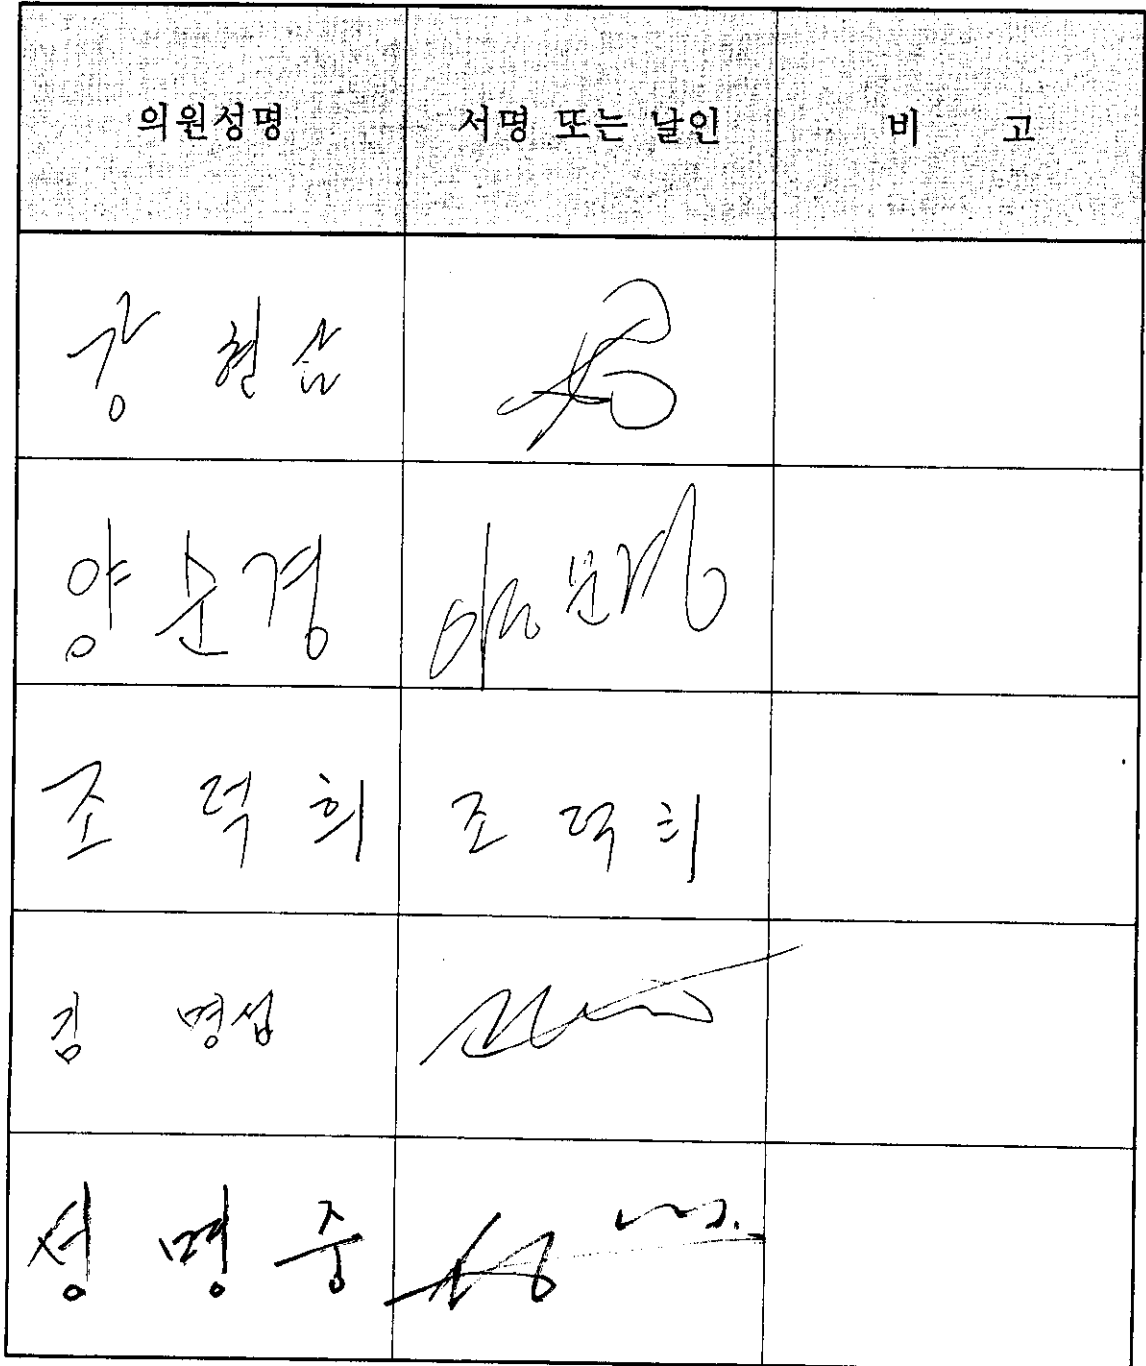 의원성명 서명 또는 날인 비 고
강 현삼
양순경 양문경
조 덕희 조 덕희
김 명섭
성 명 중